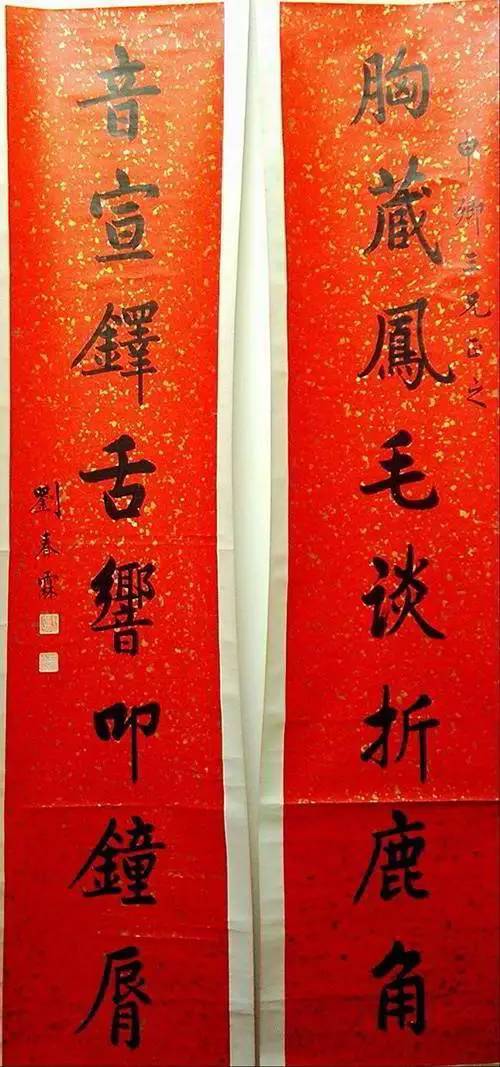 申卿三兄正之
胸藏鳳毛谈折鹿角
音宣鐸舌響叩鐘脣
劉春霖